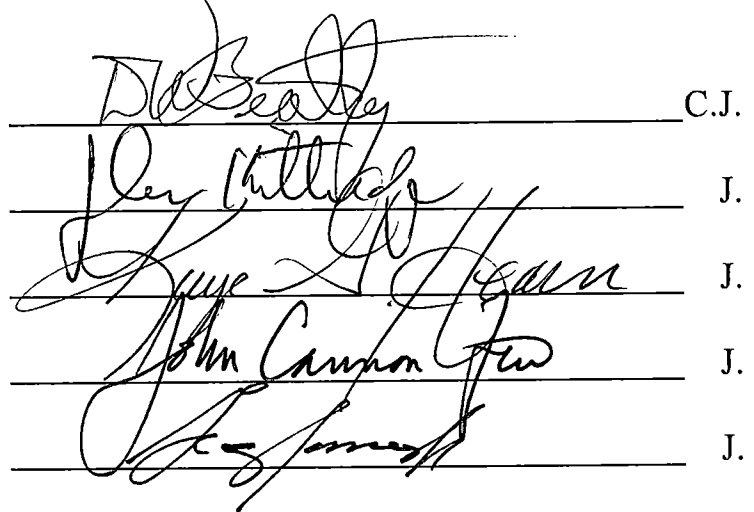 DW Beatty C.J.
J.
Kaye G. Hearn J.
John Cannon Few J.
J.